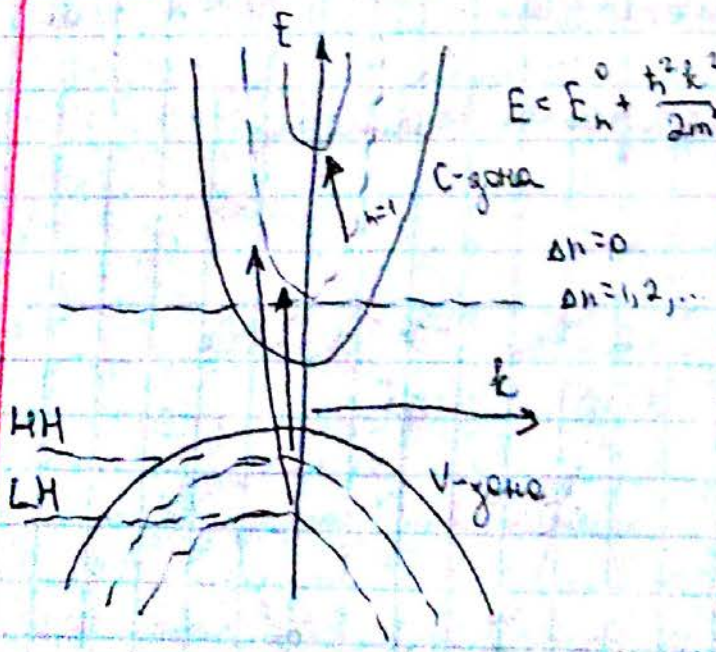 E
E = E_n^0 + ħ²k²/2m
C-зона
n=1
Δn=0
Δn=1,2,...
k
HH
LH
V-зона